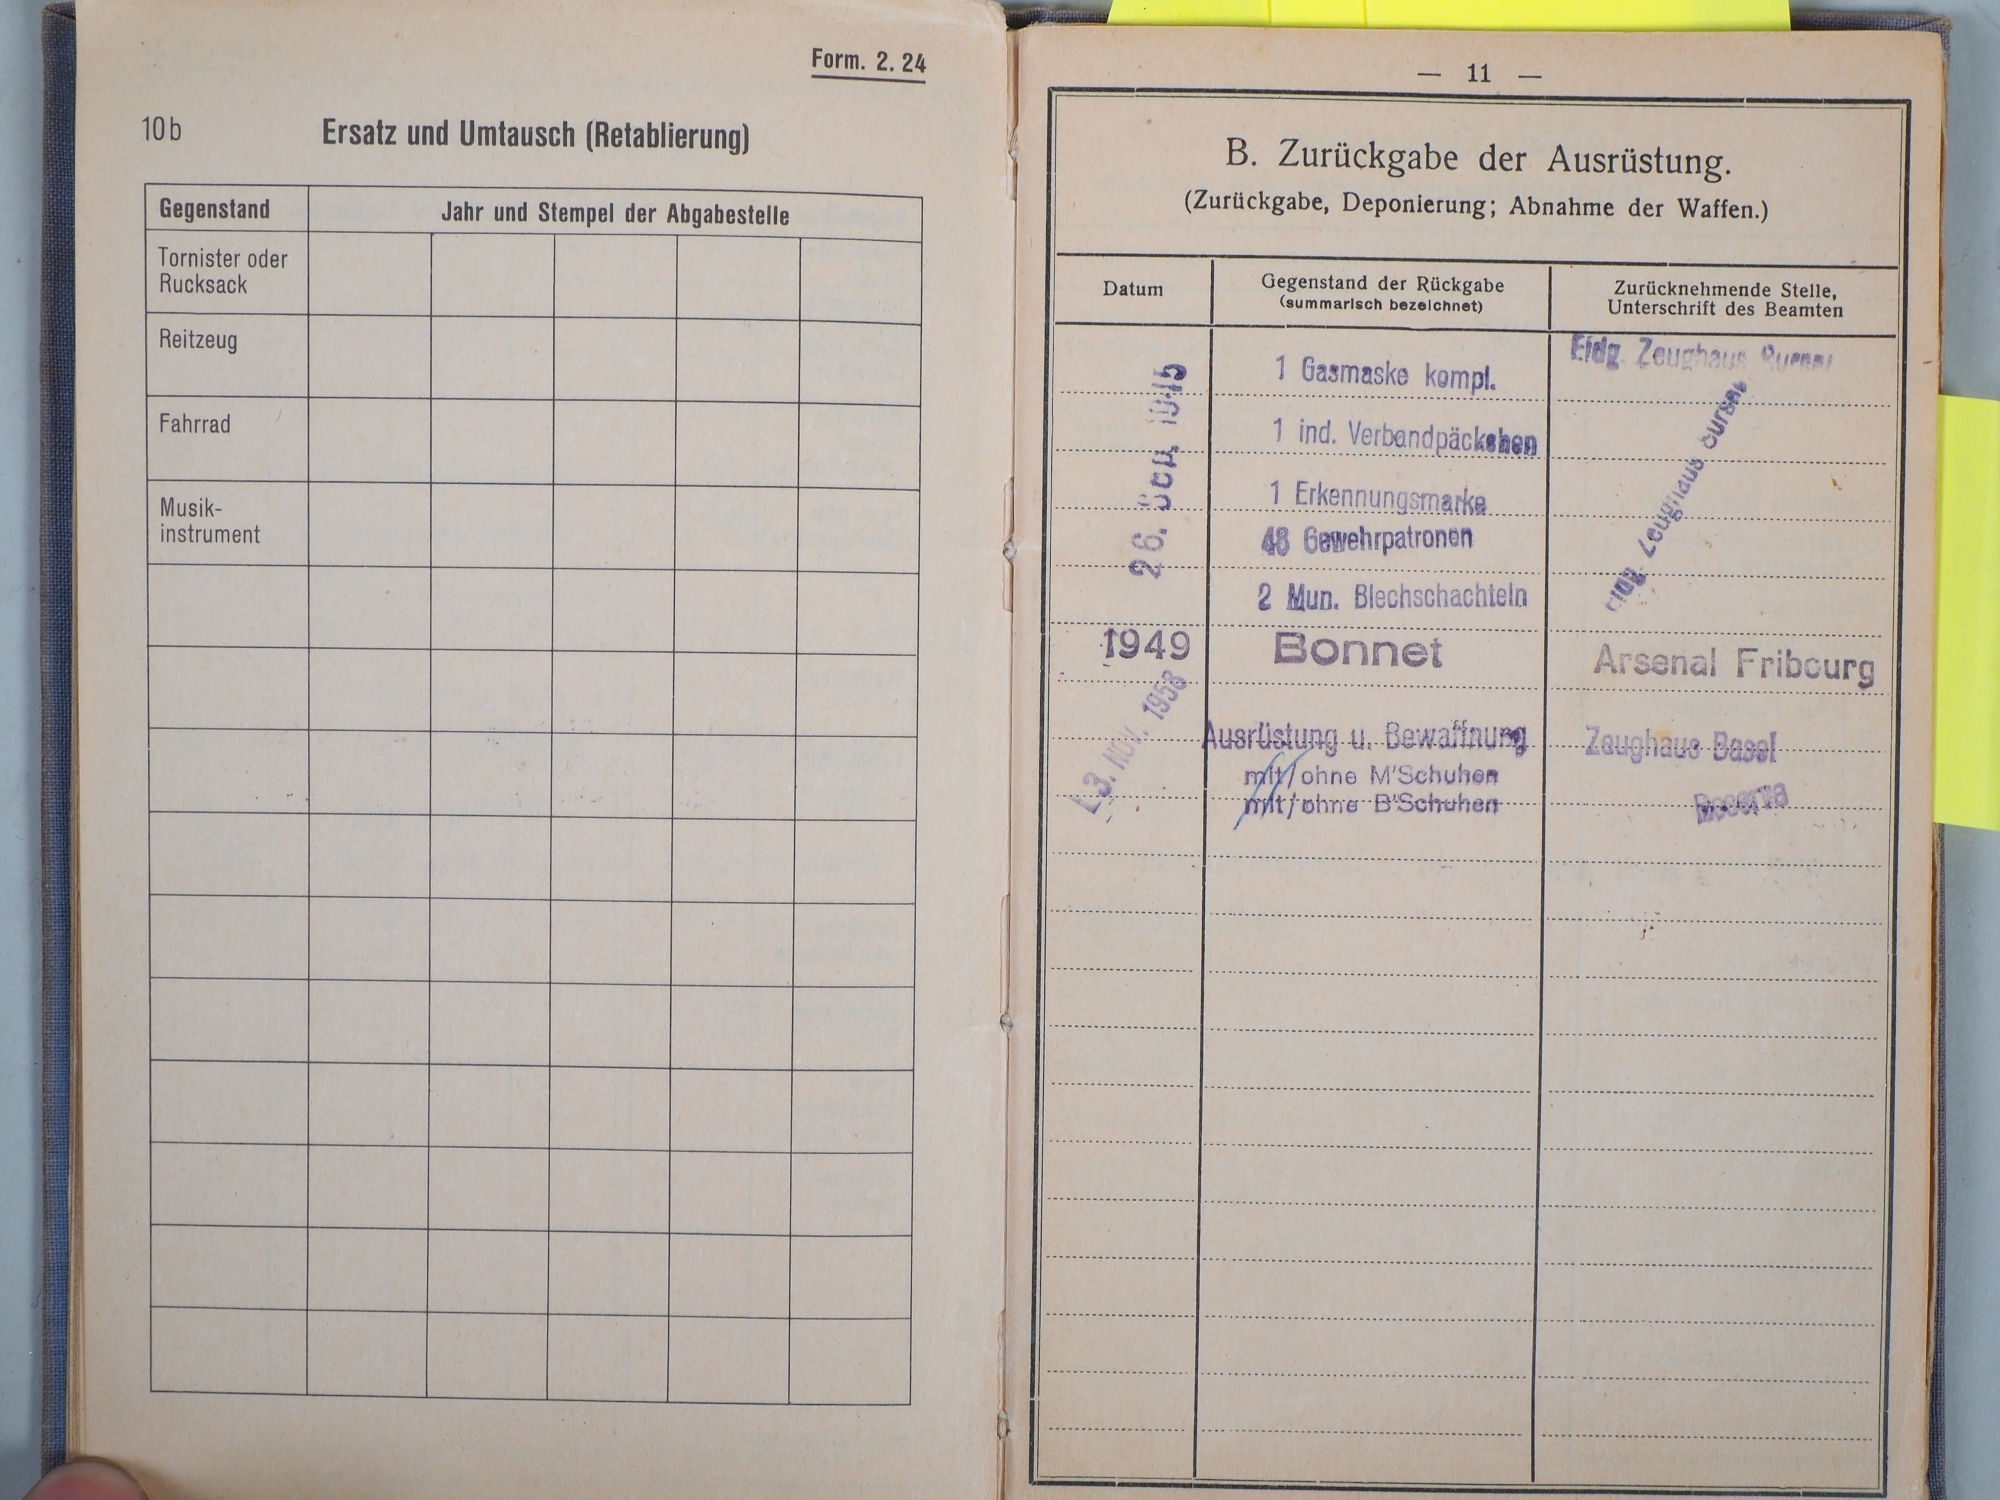 Form. 2. 24
10b
Ersatz und Umtausch (Retablierung)
Gegenstand
Jahr und Stempel der Abgabestelle
Tornister oder
Rucksack
Reitzeug
Fahrrad
Musik-
instrument
— 11 —
B. Zurückgabe der Ausrüstung.
(Zurückgabe, Deponierung; Abnahme der Waffen.)
Datum
Gegenstand der Rückgabe
(summarisch bezeichnet)
Zurücknehmende Stelle,
Unterschrift des Beamten
26. Sep. 1945
1 Gasmaske kompl.
Eidg. Zeughaus
1 ind. Verbandpäckchen
1 Erkennungsmarke
48 Gewehrpatronen
2 Mun. Blechschachteln
Eidg. Zeughaus
1949
Bonnet
Arsenal Fribourg
3. NOV. 1953
Ausrüstung u. Bewaffnung
Zeughaus Basel
mit/ohne M'Schuhen
mit/ohne B'Schuhen